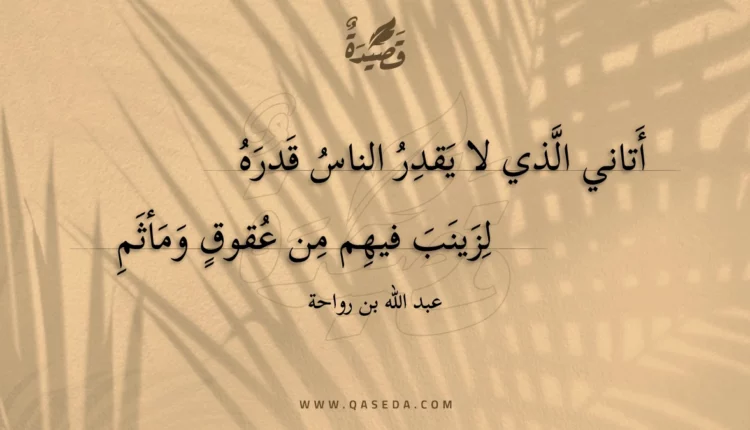 قَصِيْدَةٌ
أَتاني الَّذي لا يَقدِرُ الناسُ قَدرَهُ
لِزَينَبَ فيهِم مِن عُقوقٍ وَمَأثَمِ
عبد الله بن رواحة
WWW.QASEDA.COM